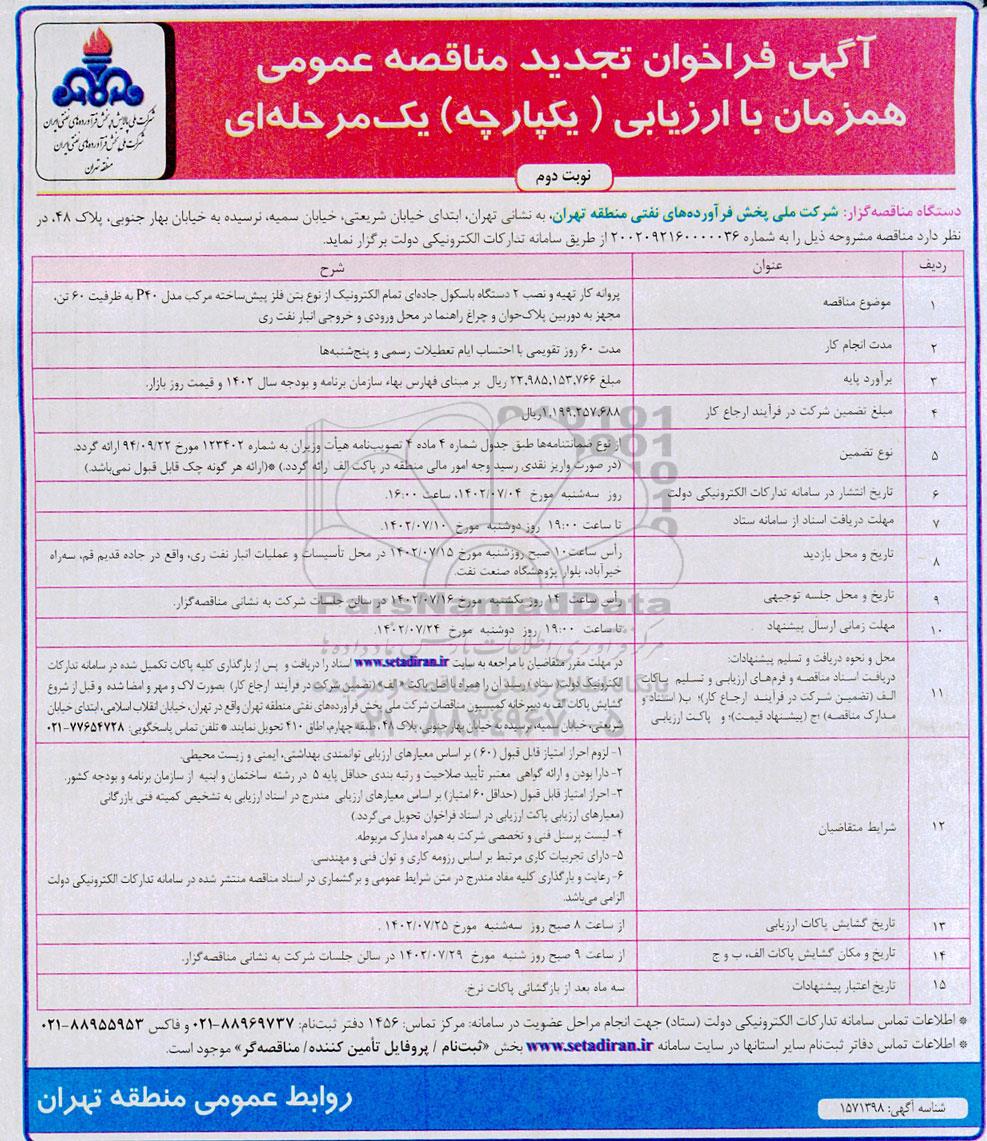 آگهی فراخوان تجدید مناقصه عمومی
همزمان با ارزیابی ( یکپارچه ) یک‌مرحله‌ای
شرکت ملی پالایش و پخش فرآورده‌های نفتی ایران
شرکت ملی پخش فرآورده‌های نفتی ایران
منطقه تهران
نوبت دوم
دستگاه مناقصه‌گزار: شرکت ملی پخش فرآورده‌های نفتی منطقه تهران، به نشانی تهران، ابتدای خیابان شریعتی، خیابان سمیه، نرسیده به خیابان بهار جنوبی، پلاک ۴۸، در
نظر دارد مناقصه مشروحه ذیل را به شماره ۲۰۰۲۰۹۲۱۶۰۰۰۰۰۳۶ از طریق سامانه تدارکات الکترونیکی دولت برگزار نماید.
ردیف عنوان شرح
۱ موضوع مناقصه پروانه کار تهیه و نصب ۲ دستگاه باسکول جاده‌ای تمام الکترونیک از نوع بتن فلز پیش‌ساخته مرکب مدل P۴۰ به ظرفیت ۶۰ تن،
مجهز به دوربین پلاک‌خوان و چراغ راهنما در محل ورودی و خروجی انبار نفت ری
۲ مدت انجام کار مدت ۶۰ روز تقویمی با احتساب ایام تعطیلات رسمی و پنج‌شنبه‌ها
۳ برآورد پایه مبلغ ۲۲,۹۸۵,۱۵۳,۷۶۶ ریال بر مبنای فهارس بهاء سازمان برنامه و بودجه سال ۱۴۰۲ و قیمت روز بازار.
۴ مبلغ تضمین شرکت در فرآیند ارجاع کار ۱,۱۹۹,۲۵۷,۶۸۸ ریال
۵ نوع تضمین از نوع ضمانتنامه‌ها طبق جدول شماره ۴ ماده ۴ تصویب‌نامه هیأت وزیران به شماره ۱۲۳۴۰۲ مورخ ۹۴/۰۹/۲۲ ارائه گردد.
(در صورت واریز نقدی رسید وجه امور مالی منطقه در پاکت الف ارائه گردد.) *(ارائه هر گونه چک قابل قبول نمی‌باشد.)
۶ تاریخ انتشار در سامانه تدارکات الکترونیکی دولت روز سه‌شنبه مورخ ۱۴۰۲/۰۷/۰۴، ساعت ۱۶:۰۰.
۷ مهلت دریافت اسناد از سامانه ستاد تا ساعت ۱۹:۰۰ روز دوشنبه مورخ ۱۴۰۲/۰۷/۱۰.
۸ تاریخ و محل بازدید رأس ساعت ۱۰ صبح روزشنبه مورخ ۱۴۰۲/۰۷/۱۵ در محل تأسیسات و عملیات انبار نفت ری، واقع در جاده قدیم قم، سه‌راه
خیرآباد، بلوار پژوهشگاه صنعت نفت.
۹ تاریخ و محل جلسه توجیهی رأس ساعت ۱۴ روز یکشنبه مورخ ۱۴۰۲/۰۷/۱۶ در سالن جلسات شرکت به نشانی مناقصه‌گزار.
۱۰ مهلت زمانی ارسال پیشنهاد تا ساعت ۱۹:۰۰ روز دوشنبه مورخ ۱۴۰۲/۰۷/۲۴.
۱۱ محل و نحوه دریافت و تسلیم پیشنهادات:
دریافت اسناد مناقصه و فرم‌های ارزیابی و تسلیم پاکات
الف (تضمین شرکت در فرآیند ارجاع کار)؛ ب( اسناد و
مدارک مناقصه) ؛ج (پیشنهاد قیمت)؛ و پاکت ارزیابی
در مهلت مقرر متقاضیان با مراجعه به سایت www.setadiran.ir اسناد را دریافت و پس از بارگذاری کلیه پاکات تکمیل شده در سامانه تدارکات
الکترونیک دولت( ستاد ) رسید آن را همراه با اصل پاکت « الف» (تضمین شرکت در فرآیند ارجاع کار) بصورت لاک و مهر و امضا شده و قبل از شروع
گشایش پاکات الف به دبیرخانه کمیسیون مناقصات شرکت ملی پخش فرآورده‌های نفتی منطقه تهران واقع در تهران، خیابان انقلاب اسلامی، ابتدای خیابان
شریعتی، خیابان سمیه، نرسیده به خیابان بهار جنوبی، پلاک ۴۸، طبقه چهارم، اطاق ۴۱۰ تحویل نمایند. * تلفن تماس پاسخگویی: ۷۷۶۵۴۷۲۸-۰۲۱
۱۲ شرایط متقاضیان ۱- لزوم احراز امتیاز قابل قبول (۶۰ ) بر اساس معیارهای ارزیابی توانمندی بهداشتی، ایمنی و زیست محیطی.
۲- دارا بودن و ارائه گواهی معتبر تأیید صلاحیت و رتبه بندی حداقل پایه ۵ در رشته ساختمان و ابنیه از سازمان برنامه و بودجه کشور.
۳- احراز امتیاز قابل قبول (حداقل ۶۰ امتیاز) بر اساس معیارهای ارزیابی مندرج در اسناد ارزیابی به تشخیص کمیته فنی بازرگانی
(معیارهای ارزیابی پاکت ارزیابی در اسناد فراخوان تحویل می‌گردد.)
۴- لیست پرسنل فنی و تخصصی شرکت به همراه مدارک مربوطه.
۵- دارای تجربیات کاری مرتبط بر اساس رزومه کاری و توان فنی و مهندسی.
۶- رعایت و بارگذاری کلیه مفاد مندرج در متن شرایط عمومی و برگشماری در اسناد مناقصه منتشر شده در سامانه تدارکات الکترونیکی دولت
الزامی می‌باشد.
۱۳ تاریخ گشایش پاکات ارزیابی از ساعت ۸ صبح روز سه‌شنبه مورخ ۱۴۰۲/۰۷/۲۵ .
۱۴ تاریخ و مکان گشایش پاکات الف، ب و ج از ساعت ۹ صبح روز شنبه مورخ ۱۴۰۲/۰۷/۲۹ در سالن جلسات شرکت به نشانی مناقصه‌گزار.
۱۵ تاریخ اعتبار پیشنهادات سه ماه بعد از بازگشائی پاکات نرخ.
* اطلاعات تماس سامانه تدارکات الکترونیکی دولت (ستاد) جهت انجام مراحل عضویت در سامانه: مرکز تماس: ۱۴۵۶ دفتر ثبت‌نام: ۸۸۹۶۹۷۳۷-۰۲۱ و فاکس ۸۸۹۵۵۹۵۳-۰۲۱
* اطلاعات تماس دفاتر ثبت‌نام سایر استانها در سایت سامانه www.setadiran.ir بخش «ثبت‌نام / پروفایل تأمین کننده/ مناقصه‌گر» موجود است.
شناسه آگهی: ۱۵۷۱۳۹۸
روابط عمومی منطقه تهران
ParsNamadData